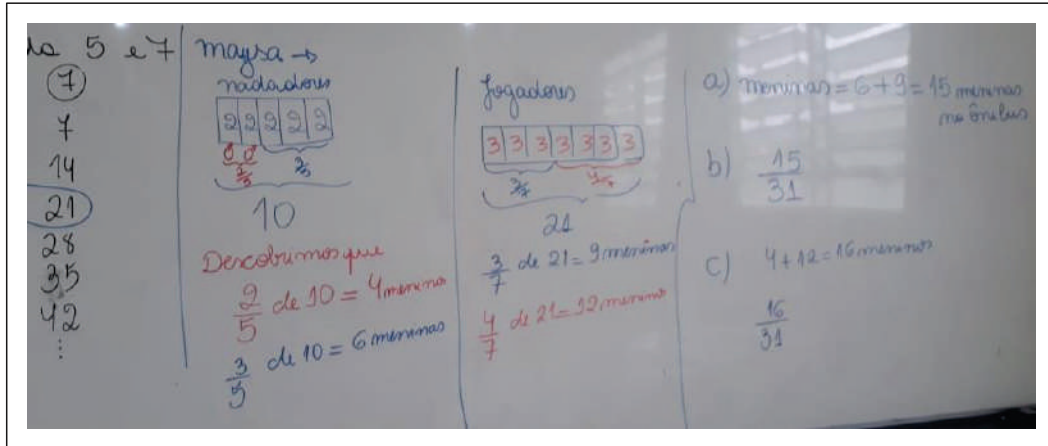 5 e 7
7
7
14
21
28
35
42
⋮
maysa →
nadadores
2 2 2 2 2
2/5 3/5
10
Descobrimos que
2/5 de 10 = 4 meninos
3/5 de 10 = 6 meninas
Jogadores
3 3 3 3 3 3 3
3/7 4/7
21
3/7 de 21 = 9 meninas
4/7 de 21 = 12 meninos
a) meninas = 6 + 9 = 15 meninas
no ônibus
b) 15/31
c) 4 + 12 = 16 meninos
16/31